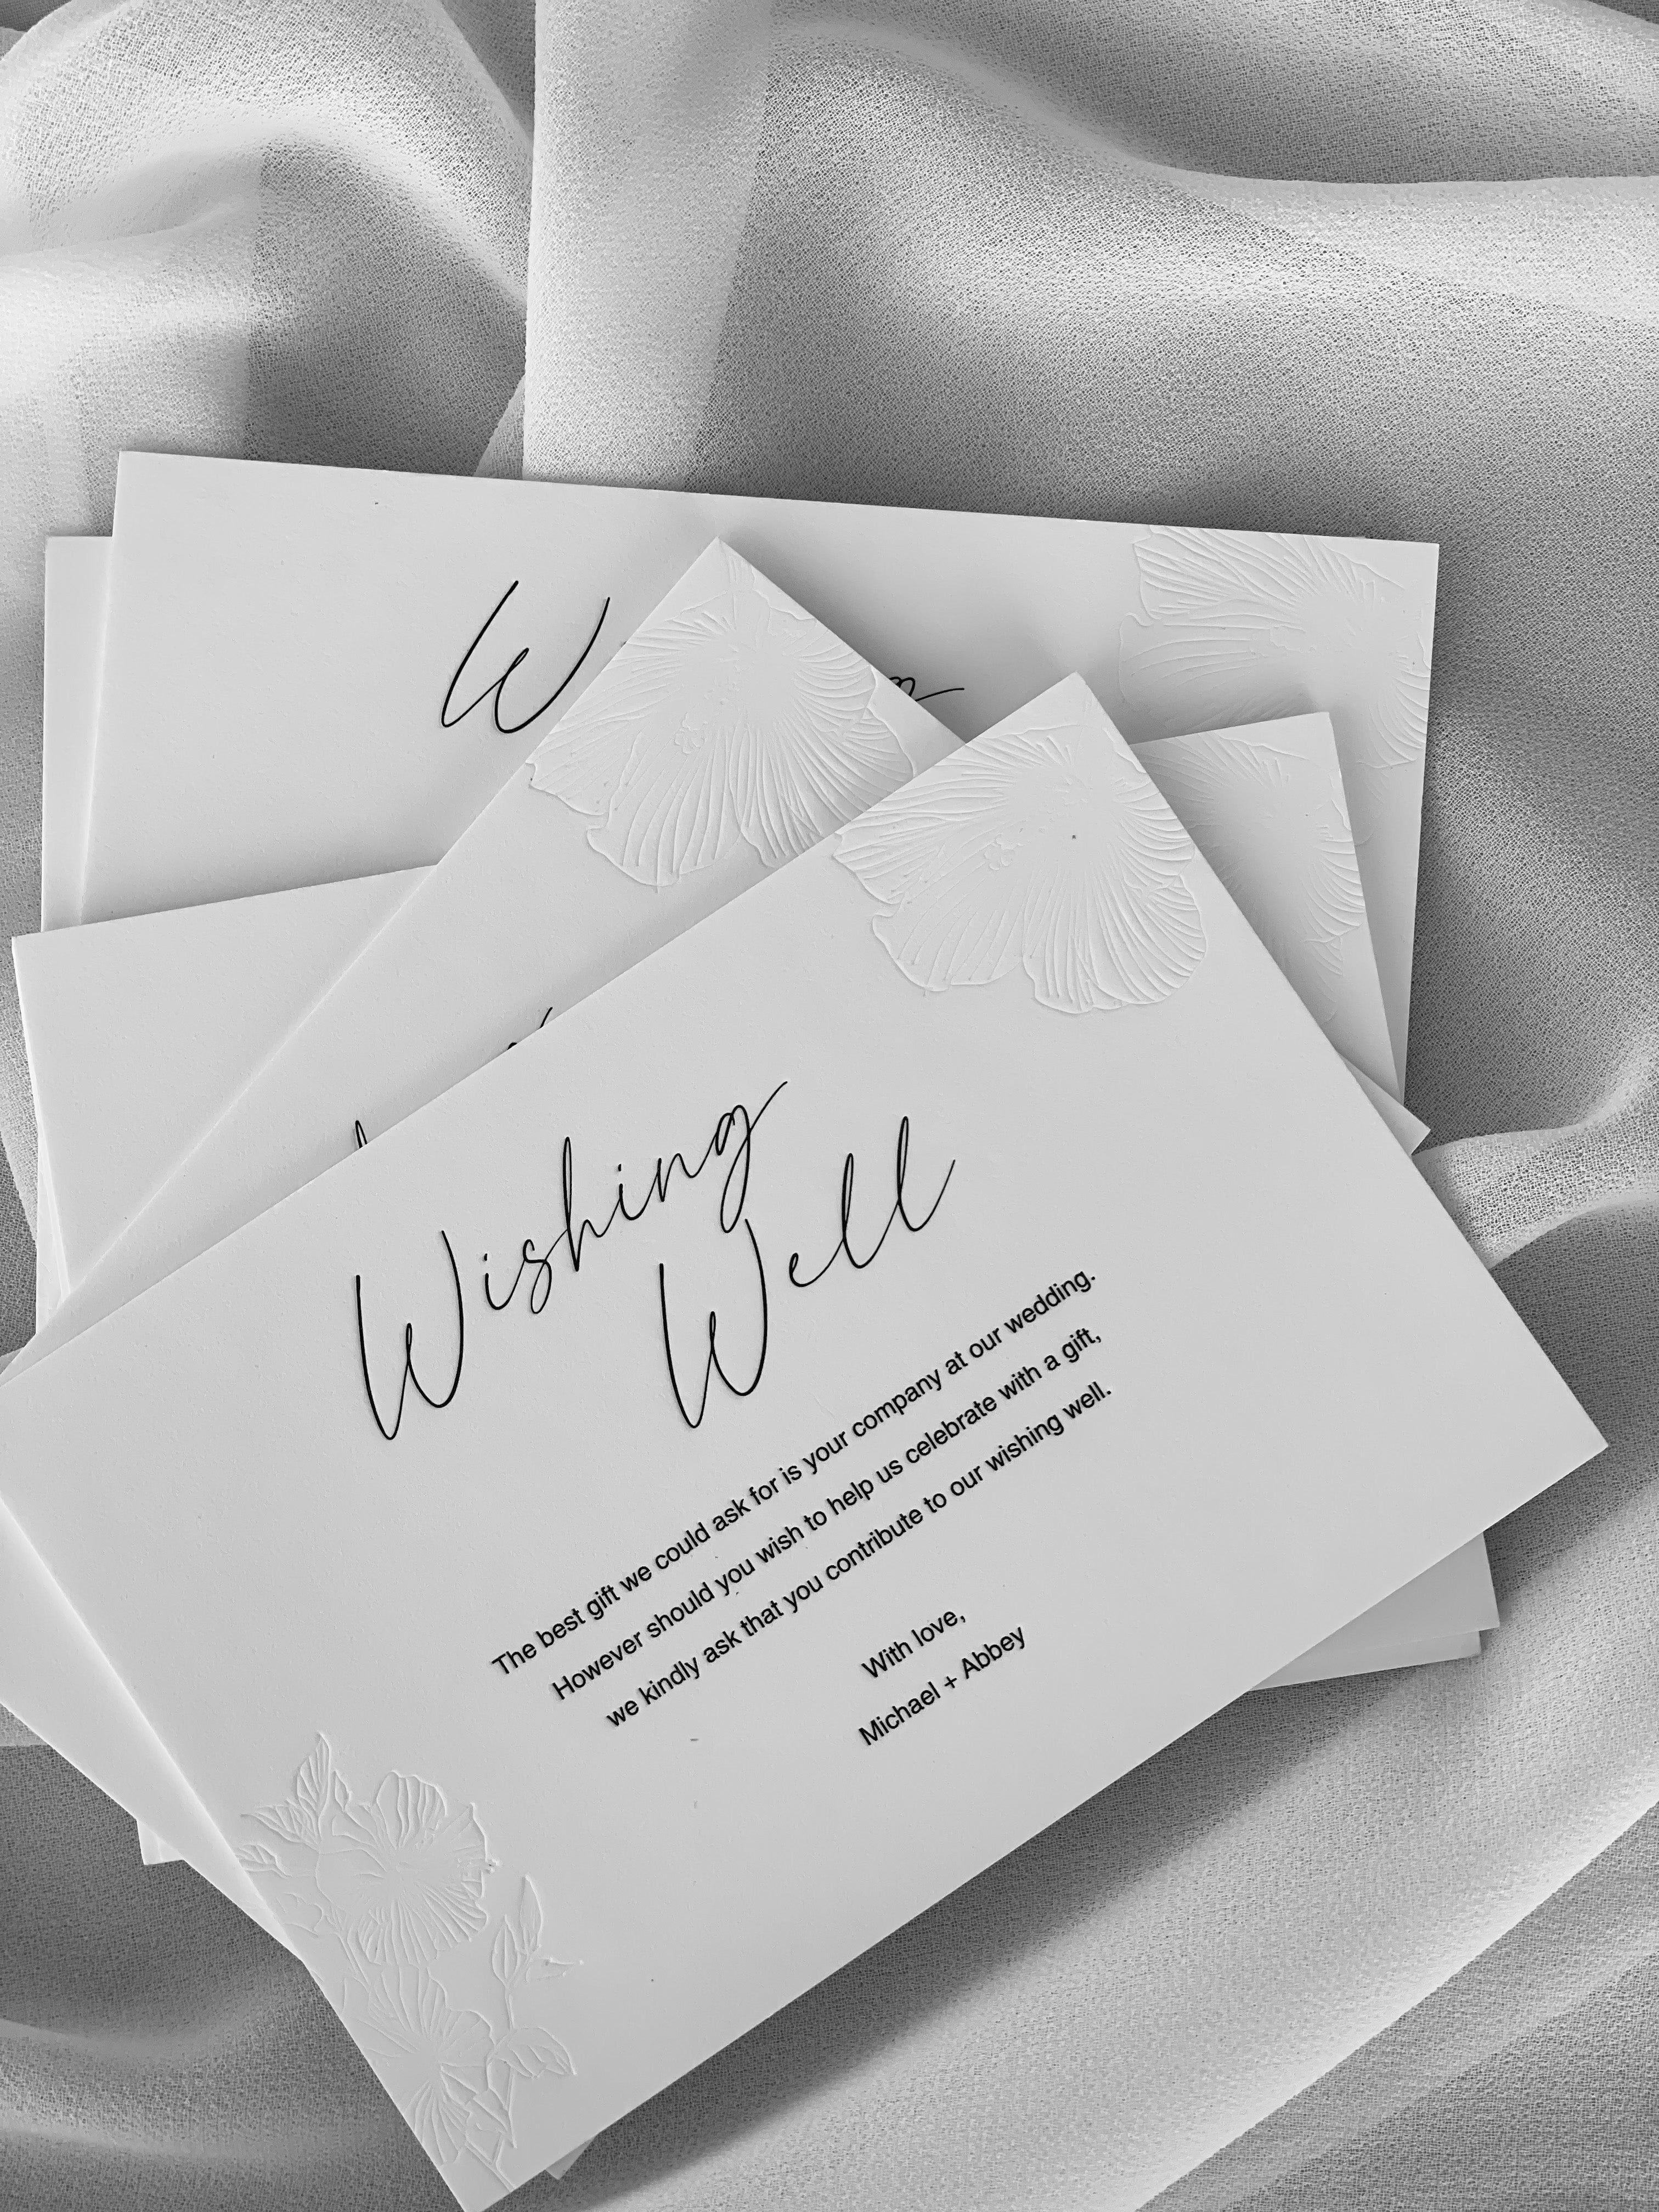 Wishing
Well
The best gift we could ask for is your company at our wedding.
However should you wish to help us celebrate with a gift,
we kindly ask that you contribute to our wishing well.
With love,
Michael + Abbey